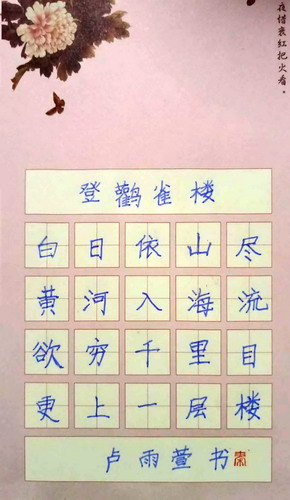 夜惜衰紅把火看。
登鸛雀楼
白日依山尽
黄河入海流
欲穷千里目
更上一层楼
卢雨萱书